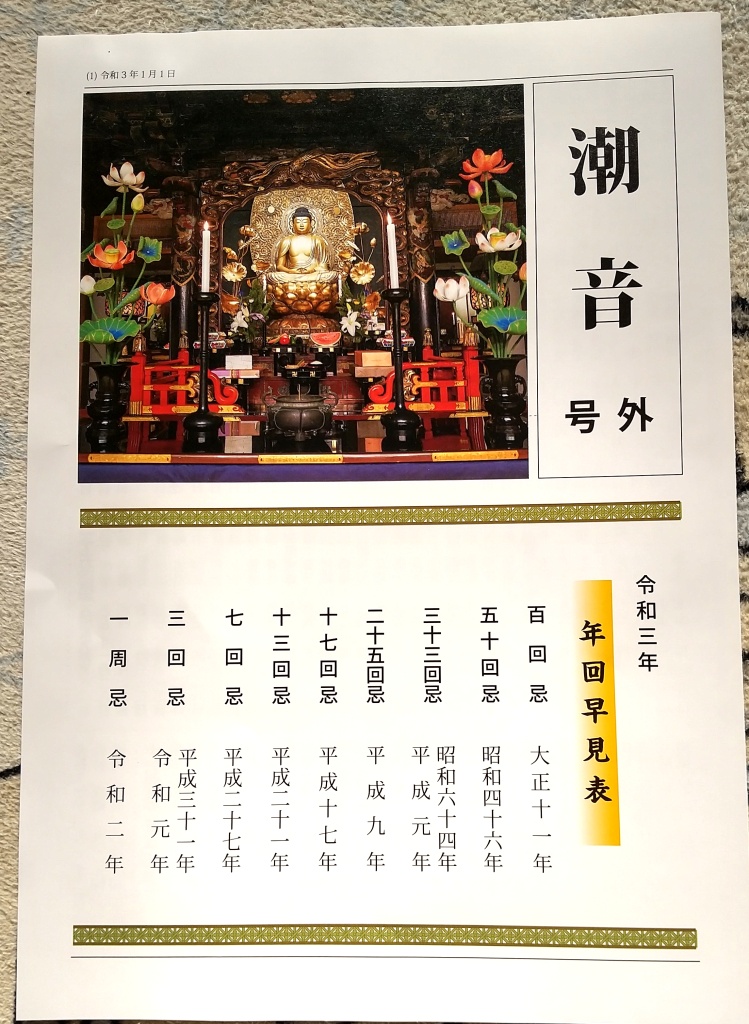 (1) 令和3年1月1日
潮音
号外
令和三年
年回早見表
百回忌 大正十一年
五十回忌 昭和四十六年
三十三回忌 昭和六十四年
平成元年
二十五回忌 平成九年
十七回忌 平成十七年
十三回忌 平成二十一年
七回忌 平成二十七年
三回忌 平成三十一年
令和元年
一周忌 令和二年